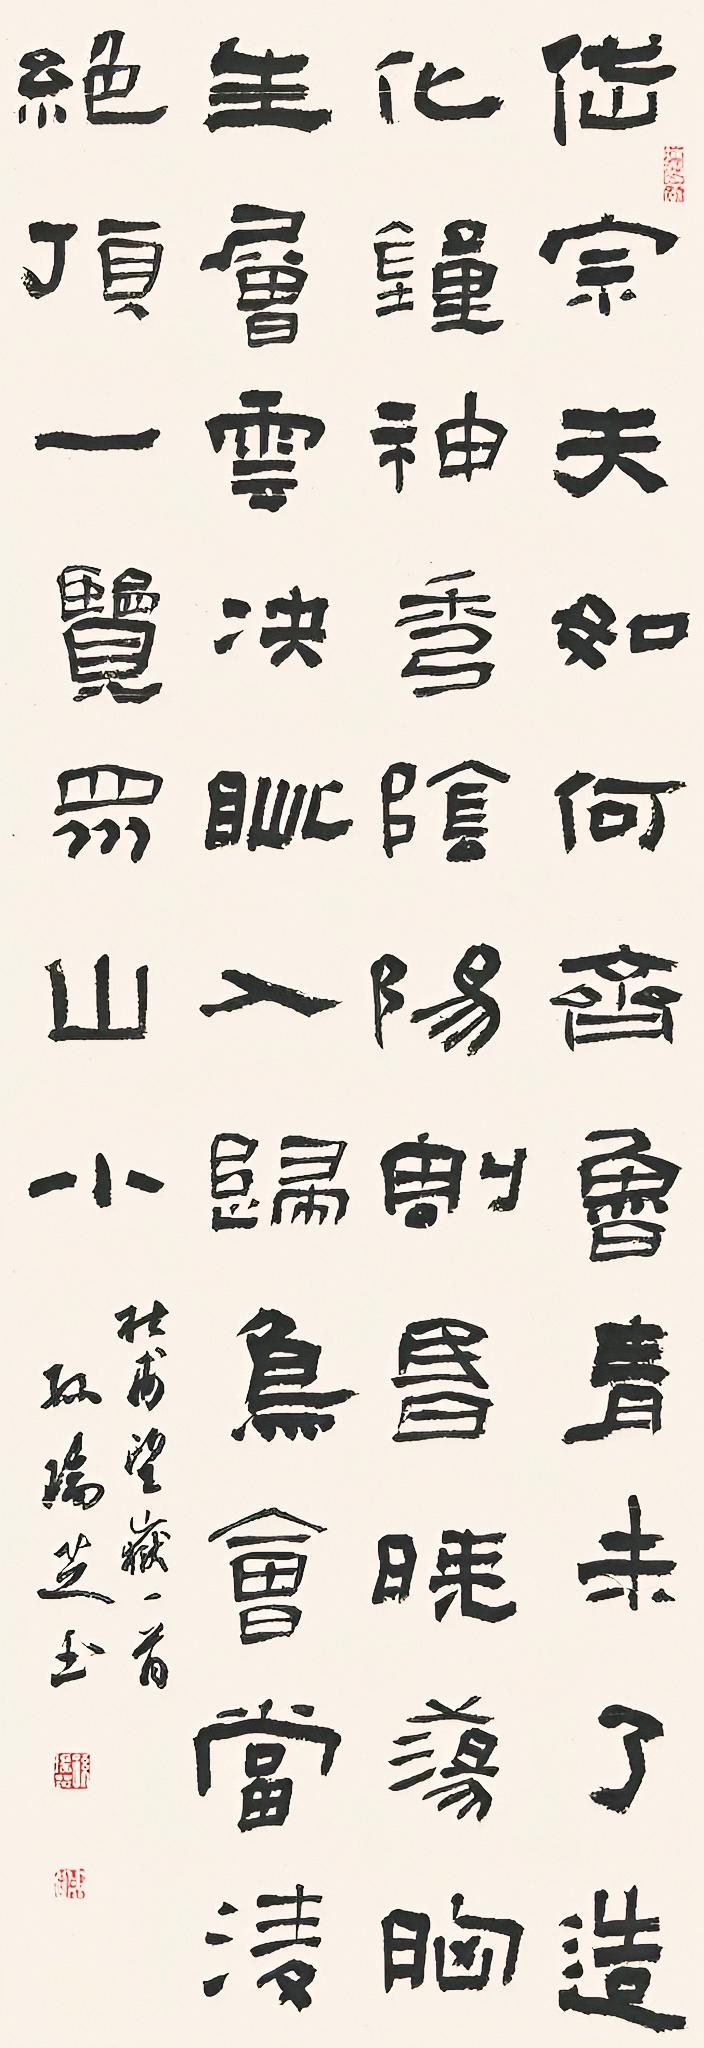 岱宗夫如何齊魯青未了造
化鍾神秀陰陽割昏曉蕩胸
生層雲决眦入歸鳥會當凌
絕頂一覽眾山小
杜甫望嶽一首
孫瑞芝書